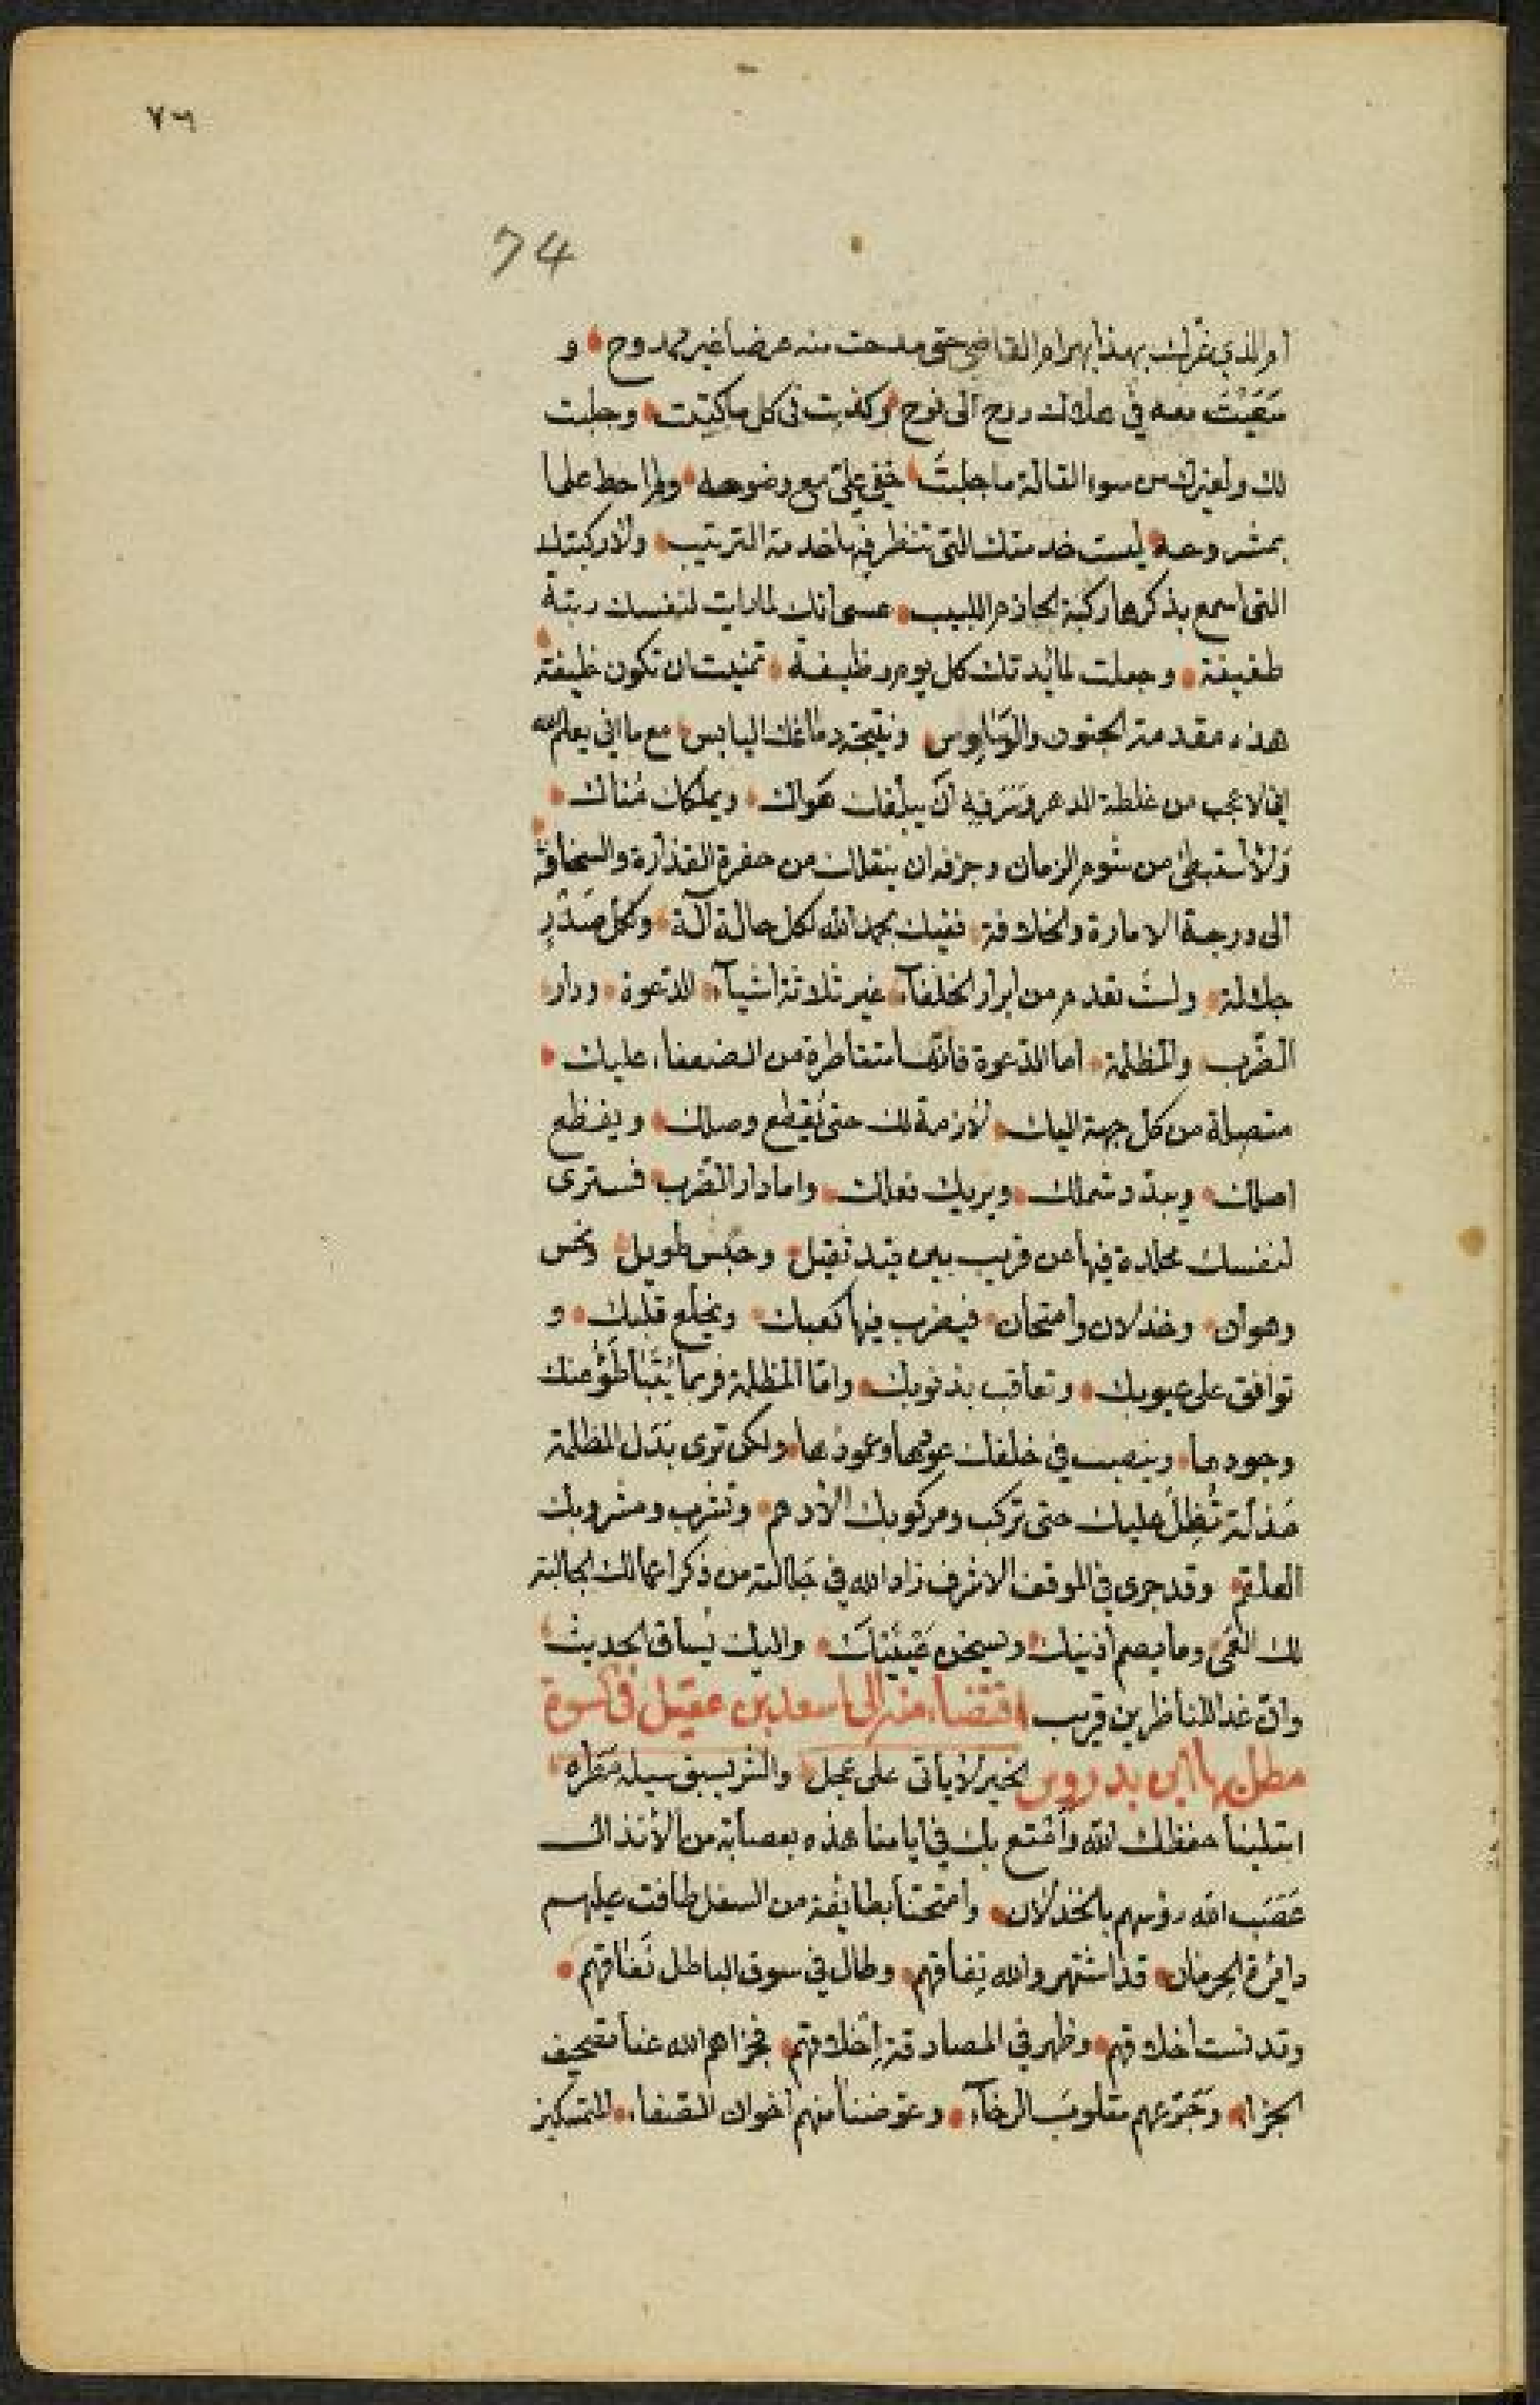 ٧٦
74
أم الذي غرك بهذا بهرام القاضي حتى مدحت منه عرضا غير ممدوح و
معه في روح الى نوح وكذبت في كل ما كتبت وجلبت
لك ولغيرك من سوء القالة ما جلبت خفي علي مع وضوحه ولم احط علما
بمشروحه ليست خدمتك التي تنظر فيها خدمة الترتيب ولا ركبتك
التي اسمع بذكرها ركبة الحازم اللبيب عسى انك لما رايت لنفسك رتبة
طفيفة وجعلت لمائدتك كل يوم وظيفة تمنيت ان تكون خليفة
هذه مقدمة الجنون والوساوس ونتيجة دماغك اليابس مع ما اني يعلم الله
اني لاعجب من غلطة الدهر أن يبلغك هواك ويملكك مناك
ولا أستبطئ من شوم الزمان وخرفه ان ينقلك من حفرة القذارة والسخافة
الى درجة الامارة والخلافة ففيك بحمد الله لكل حالة آلة ولكل صدر
جلالة ولست تعدم من ابرار الخلفآء غير ثلاثة أشيآء الدعوة ودار
الضرب والمظلة اما الدعوة فانها متقاطرة من الضعفاء عليك
متصلة من كل جهة اليك لازمة لك حتى يقطع وصلك ويفظع
اصلك ويبدد شملك ويريك فعلك واما دار الضرب فسترى
لنفسك مخلدة فيها عن قريب بين قيد ثقيل وحبس طويل ونحس
وهوان وخذلان وامتحان فيضرب فيها كعبك ويخلع قلبك و
توافق على عيوبك وتعاقب بذنوبك واما المظلة فربما يتباطؤ عنك
وجودها وينصب في خلفك عودها وعمودها ولكن ترى بدل المظلة
مذلة تظل عليك حتى تركب ومركوبك الأدهم وتشرب ومشروبك
العلقم وقد جرى في الموقف الاشرف زاد الله في جلالته من ذكر اعمالك الجالبة
لك العمى وما يصم أذنيك ويسخن عينيك واليك يساق الحديث
وان غدا للناظرين قريب اقتضاء منه الى اسعد بن عقيل في كسوة
مطل بها ابن بدروس الخير لا يأتي على عجل والشر يسبق سيله مطره
ابتلينا حفظك الله وأمتع بك في أيامنا هذه بعصابة من الأنذال
عصب الله رؤسهم بالخذلان وامتحنا بطائفة من السفل طافت عليهم
دائرة الحرمان قد اشتهر والله نفاقهم وطال في سوق الباطل نفاقهم
وتدنست أخلاقهم وظهر في المصادقة إخلاقهم فجزاهم الله عنا تصحيف
الجزاء وجرعهم مقلوب الرخآء وعوضنا منهم اخوان الصفاء